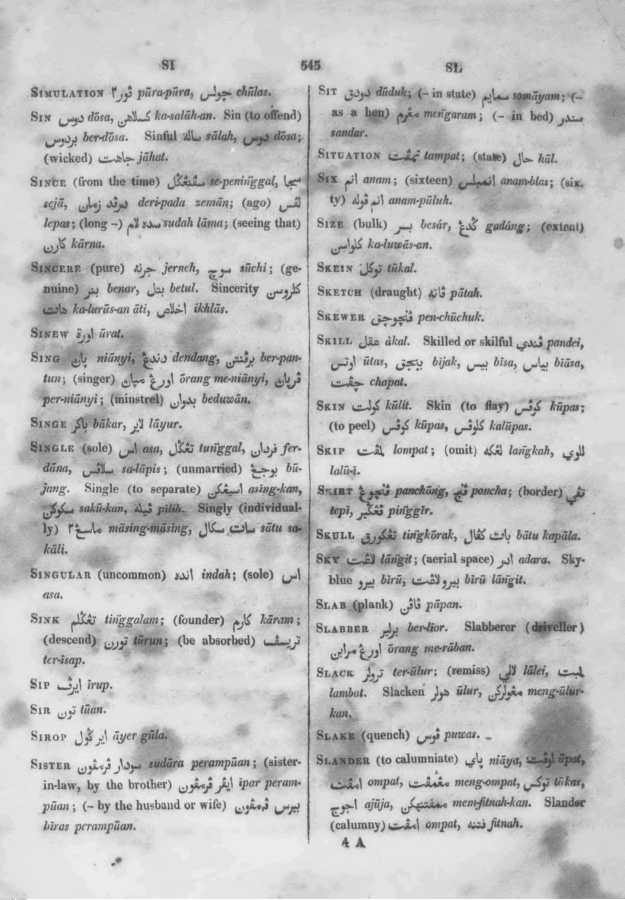 SI
545
SL
SIMULATION ڤورا٢ pūra-pūra, چولس chūlas.
SIN دوس dōsa, کسلاهن ka-salāh-an. Sin (to offend)
بردوس ber-dōsa. Sinful ساله sālah, دوس dōsa;
(wicked) جاهت jāhat.
SINCE (from the time) سڤنڠݢل se-peninggal, سيجا
sejā, درڤد زمان deri-pada zemān; (ago) لڤس
lepas; (long -) سده لام sudah lāma; (seeing that)
کارن kārna.
SINCERE (pure) جرنه jerneh, سوچي sūchi; (ge-
nuine) بنر benar, بتل betul. Sincerity کلروسن
هات ka-lurūs-an āti, اخلاص ikhlās.
SINEW اورة ūrat.
SING niānyi, دندڠ dendang, برڤنتن ber-pan-
tun; (singer) اورڠ orang me-niānyi,
per-niānyi; (minstrel) بدوان beduwān.
SINGE باکر bākar, لاير lāyur.
SINGLE (sole) اس asa, تڠݢل tunggal, فردان fer-
dāna, سلاڤس sa-lāpis; (unmarried) بوجڠ bū-
jang. Single (to separate) اسيڠکن asing-kan,
سکوکن sakū-kan, ڤيله pilih. Singly (individual-
ly) ماسڠ٢ māsing-māsing, سات سکال sātu sa-
kāli.
SINGULAR (uncommon) انده indah; (sole) اس
asa.
SINK تڠݢلم tinggalam; (founder) کارم kāram;
(descend) تورن tūrun; (be absorbed) تريسڤ
ter-isap.
SIP ايرڤ īrup.
SIR تون tūan.
SIROP اير ݢول āyer gūla.
SISTER سودار ڤرمڤون sudāra perampūan; (sister-
in-law, by the brother) ايڤر ڤرمڤون īpar peram-
pūan; (- by the husband or wife) بيرس ڤرمڤون
bīras perampūan.
SIT دودق dūduk; (- in state) سمايم semāyam; (-
as a hen) مڠرم mengaram; (- in bed) سندر
sandar.
SITUATION تمڤت tampat; (state) حال hāl.
SIX انم anam; (sixteen) انمبلس anam-blas; (six-
ty) انم ڤوله anam-pūluh.
SIZE (bulk) بسر besár, ݢدڠ gadáng; (extent)
کلواسن ka-luwās-an.
SKEIN توکل tūkal.
SKETCH (draught) ڤاته pātah.
SKEWER ڤنچوچق pen-chūchuk.
SKILL عقل ākal. Skilled or skilful ڤندي pandei,
اوتس ūtas, بيجق bījak, بيس bīsa, بياس biāsa,
چڤت chapat.
SKIN کولت kūlit. Skin (to flay) کوڤس kūpas;
(to peel) کوڤس kūpas, کلوڤس kalūpas.
SKIP لمڤت lompat; (omit) لڠکه langkah, للوي
lalū-i.
SKIRT panchōng, pancha; (border) تڤي
tepi, ڤڠݢير pinggir.
SKULL تڠکورق tingkōrak, بات کڤال bātu kapāla.
SKY لاڠت lāngit; (aerial space) ادر adara. Sky-
blue بيرو bīrū, بيرو لاڠت bīrū lāngit.
SLAB (plank) ڤاڤن pāpan.
SLABBER ber-lior. Slabberer (driveller)
اورڠ مرابن ōrang me-rāban.
SLACK ترولر ter-ūlur; (remiss) لالي lālei, لمبت
lambat. Slacken هولر ūlur, مڠولرکن meng-ūlur-
kan.
SLAKE (quench) ڤوس puwas.
SLANDER (to calumniate) niāya, اوڤت ūpat,
امڤت ompat, مڠمڤت meng-ompat, توکس tūkas,
اجوج ajūja, ممفتنهکن mem-fitnah-kan. Slander
(calumny) امڤت ompat, فتنه fitnah.
4 A